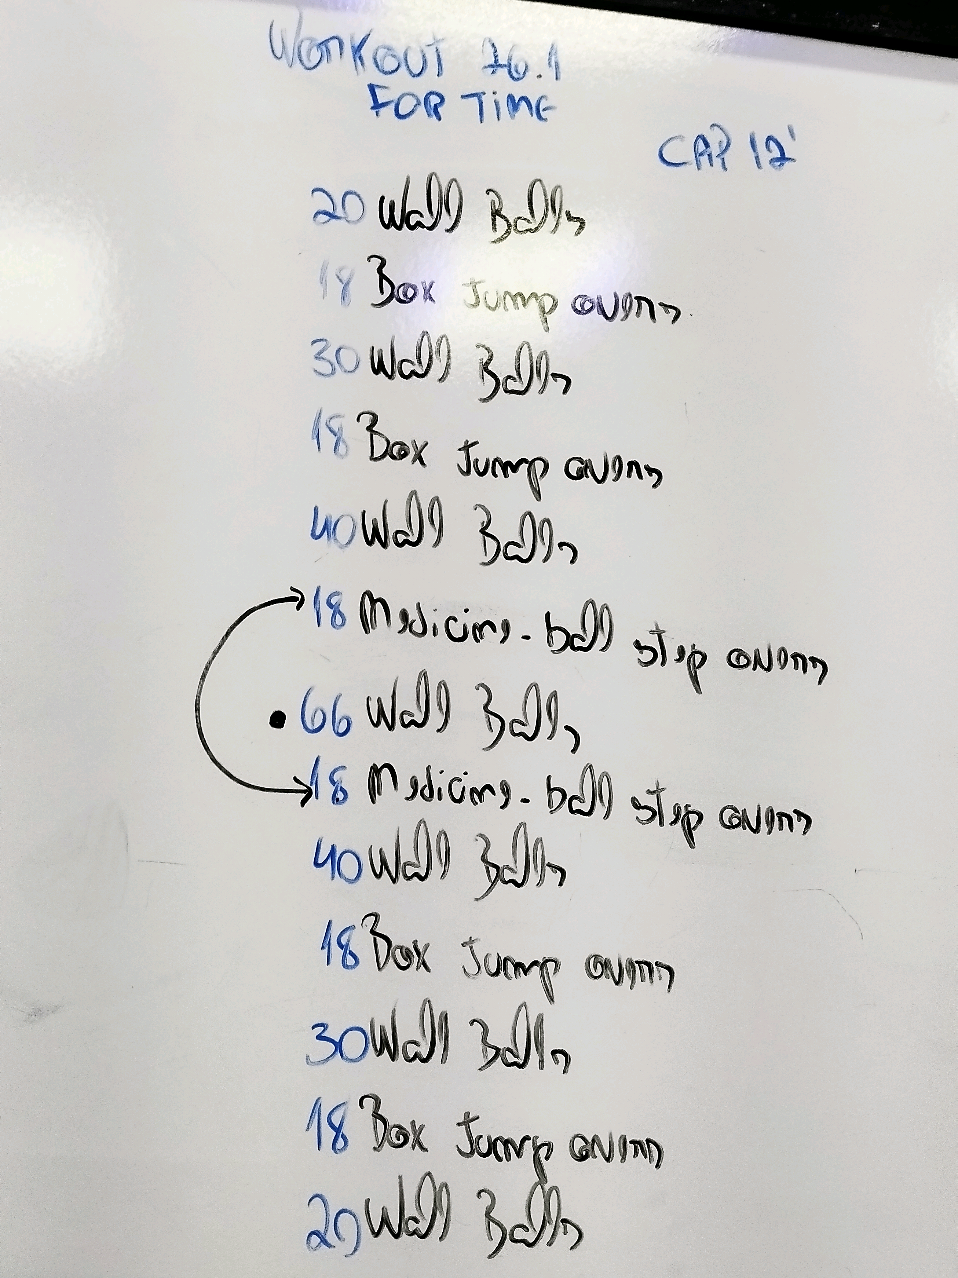 WORKOUT 26.1
FOR TIME
CAP 12'
20 Wall Balls
18 Box Jump overs
30 Wall Balls
18 Box Jump overs
40 Wall Balls
18 Medicine-ball step overs
• 66 Wall Balls
18 Medicine-ball step overs
40 Wall Balls
18 Box Jump overs
30 Wall Balls
18 Box Jump overs
20 Wall Balls